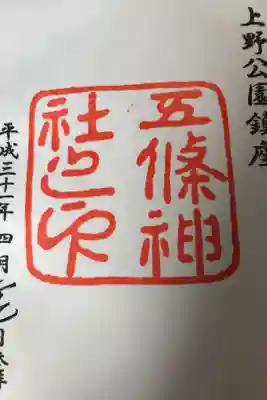 上野公園鎮座
五條神
社之印
平成三十一年四月
日参拝